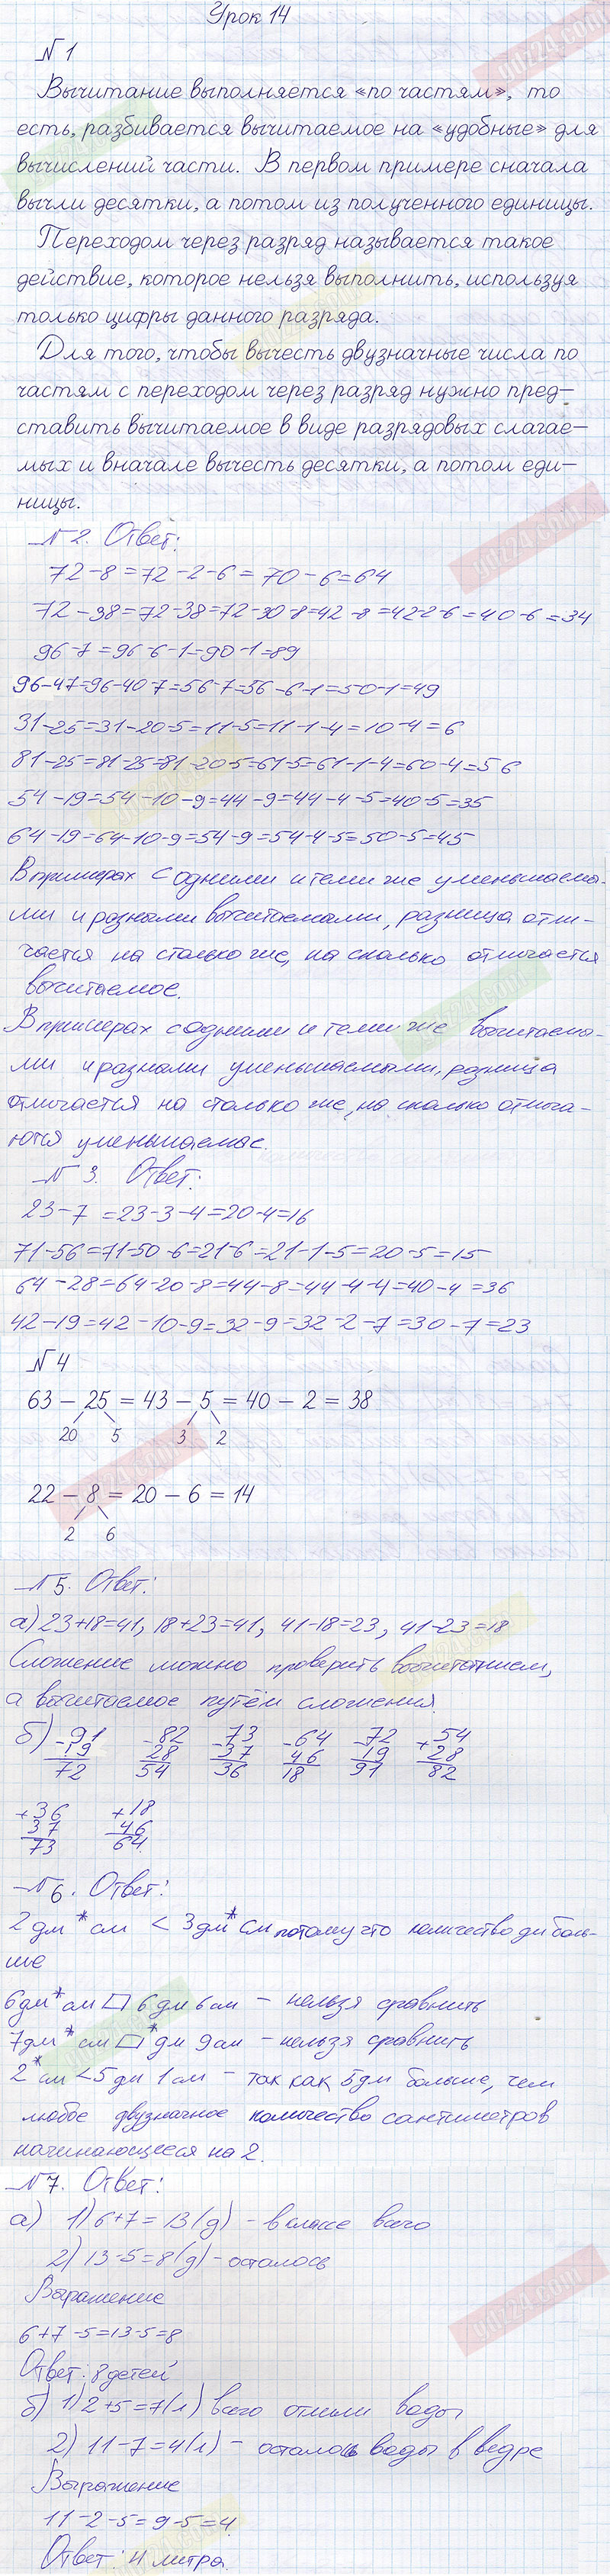 Урок 14
№ 1
Вычитание выполняется «по частям», то
есть, разбивается вычитаемое на «удобные» для
вычислений части. В первом примере сначала
вычли десятки, а потом из полученного единицы.
Переходом через разряд называется такое
действие, которое нельзя выполнить, используя
только цифры данного разряда.
Для того, чтобы вычесть двузначные числа по
частям с переходом через разряд нужно пред-
ставить вычитаемое в виде разрядовых слагае-
мых и вначале вычесть десятки, а потом еди-
ницы.
№ 2. Ответ:
72-8=72-2-6=70-6=64
72-38=72-38=72-30-8=42-8=42-2-6=40-6=34
96-7=96-6-1=90-1=89
96-47=96-40-7=56-7=56-6-1=50-1=49
31-25=31-20-5=11-5=11-1-4=10-4=6
81-25=81-25=81-20-5=61-5=61-1-4=60-4=56
54-19=54-10-9=44-9=44-4-5=40-5=35
64-19=64-10-9=54-9=54-4-5=50-5=45
В примерах с одними и теми же уменьшаемы-
ми и разными вычитаемыми, разница отли-
чается на столько же, на сколько отличается
вычитаемое.
В примерах с одними и теми же вычитаемы-
ми и разными уменьшаемыми, разница
отличается на столько же, на сколько отлича-
ются уменьшаемые.
№ 3. Ответ:
23-7=23-3-4=20-4=16
71-56=71-50-6=21-6=21-1-5=20-5=15
64-28=64-20-8=44-8=44-4-4=40-4=36
42-19=42-10-9=32-9=32-2-7=30-7=23
№ 4
63 - 25 = 43 - 5 = 40 - 2 = 38
20 5 3 2
22 - 8 = 20 - 6 = 14
2 6
№ 5. Ответ:
а) 23+18=41, 18+23=41, 41-18=23, 41-23=18
Сложение можно проверить вычитанием,
а вычитаемое путём сложения.
б) -91 -82 -73 -64 -72 +54
19 28 37 46 19 28
72 54 36 18 91 82
+36 +18
37 46
73 64
№ 6. Ответ:
2 дм * см < 3 дм * см потому что количество дм боль-
ше
6 дм * см □ 6 дм 6 см - нельзя сравнить
7 дм * см □ * дм 9 см - нельзя сравнить
2* см < 5 дм 1 см - так как 5 дм больше, чем
любое двузначное количество сантиметров
начинающееся на 2.
№ 7. Ответ:
а) 1) 6+7=13 (д) - в классе всего
2) 13-5=8 (д) - осталось
Выражение
6+7-5=13-5=8
Ответ: 8 детей
б) 1) 2+5=7 (л) всего отлили воды
2) 11-7=4 (л) - осталось воды в ведре
Выражение
11-2-5=9-5=4
Ответ: 4 литра.